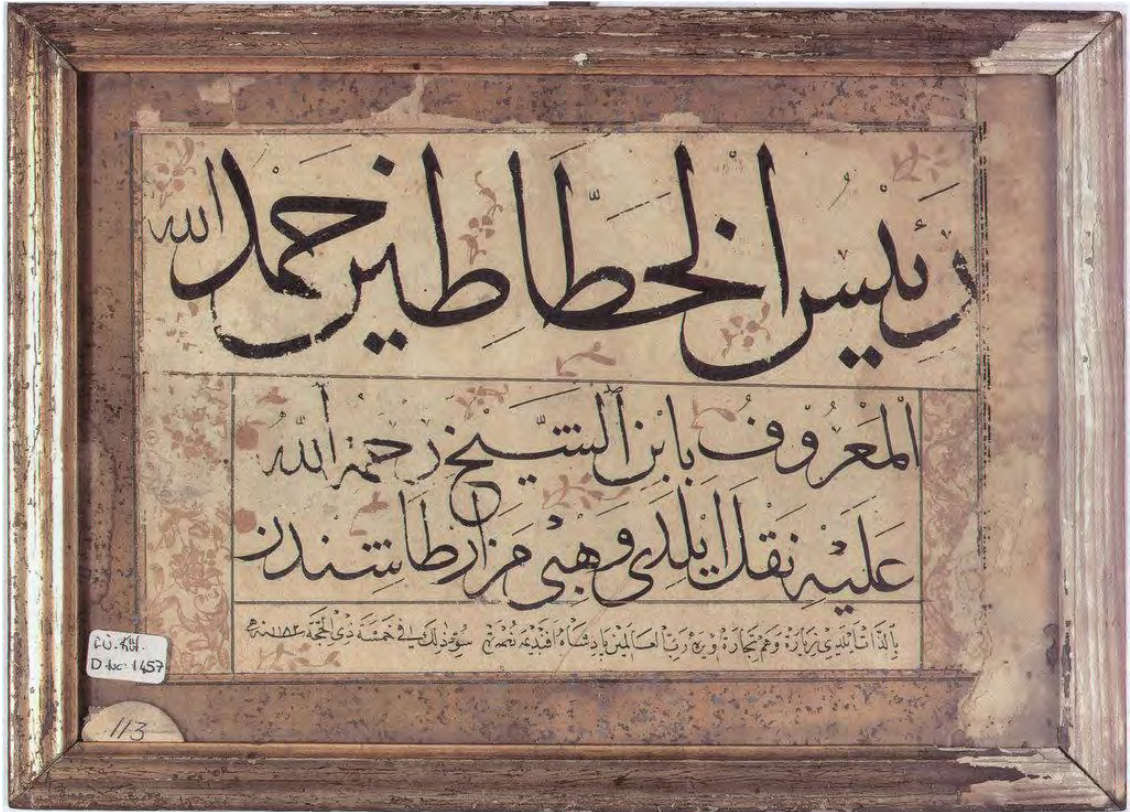 رئيس الخطاطين حمد الله
المعروف بابن الشيخ رحمة الله
عليه نقل ايلدى وهبى مزار طاشندن
بالذات ايلدى زيارة وهم تجارة ويره رب العالمين پادشاه افنديمه نصرت سود ذلك فى خمسة ذى الحجة ١١٨٢ سنه
Cü. Ktt.
D.No: 1457
113